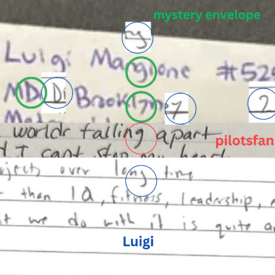 mystery envelope
ng
Luigi Mangione #529
MD Di Brooklyn
worlds falling apart
pilotsfan
I can't stop my
ojects over long time
than IQ, fitness, leadership,
we do with it is quite
Luigi